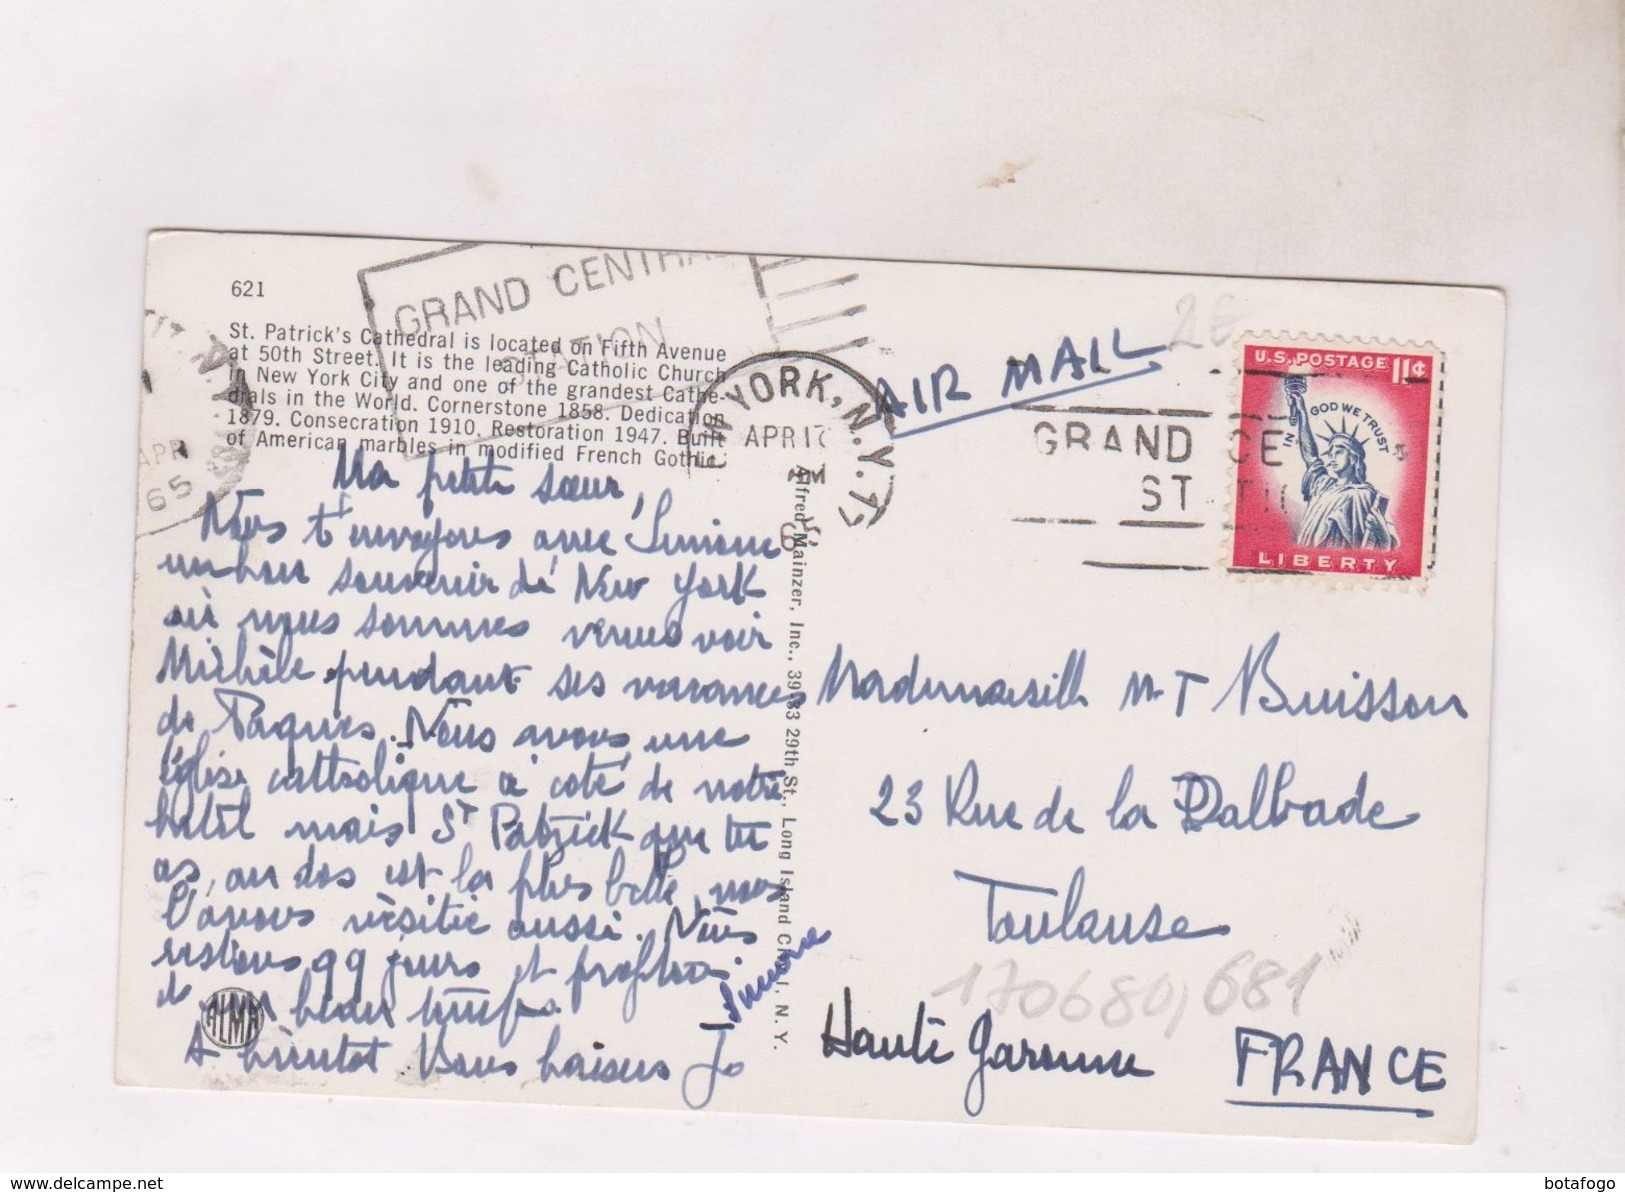 621
St. Patrick's Cathedral is located on Fifth Avenue
at 50th Street. It is the leading Catholic Church
in New York City and one of the grandest Cathe-
drals in the World. Cornerstone 1858. Dedication
1879. Consecration 1910. Restoration 1947. Built
of American marbles in modified French Gothic.
GRAND CENTRAL
STATION
N.Y.
APR
65
YORK, N.Y.
APR 17
AM
GRAND CE
ST TIO
AIR MAIL
2€
U.S. POSTAGE 11¢
IN GOD WE TRUST
LIBERTY
Ma petite sœur,
Nous t'envoyons avec Simone
un bon souvenir de New York
où nous sommes venus voir
Michèle pendant ses vacances
de Paques. Nous avons une
église catholique à coté de notre
hotel mais St Patrick que tu
as, au dos est la plus belle, nous
l'avons visitée aussi. Nous
restons 99 jours et profitons
d'un beau temps.
A bientot Bons baisers Jo
Simone
ALMA
Alfred Mainzer, Inc., 39-33 29th St., Long Island City 1, N.Y.
Mademoiselle M-T Buisson
23 Rue de la Dalbade
Toulouse
170680,681
Haute Garonne FRANCE
www.delcampe.net
botafogo